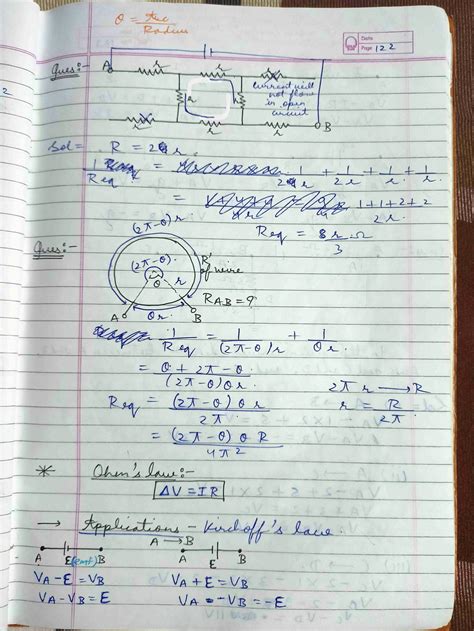 θ = Arc / Radius
Date
Page 122
Ques:-
A r r r
r r
current will
not flow
in open
circuit
r r r B
Sol = R = 2r.
1/Req = 1/2r + 1/2r + 1/r + 1/r
= 1+1+2+2 / 2r.
Req = 8r/3 Ω
Ques:-
(2π-θ)r
(2π-θ) R'
of wire
θ r
R_AB = ?
A θr B
1/Req = 1/(2π-θ)r + 1/θr.
= θ + 2π - θ / (2π-θ)θr.
2π r → R
Req = (2π-θ) θ r / 2π
r = R/2π
= (2π-θ) θ R / 4π²
* Ohm's law:-
ΔV = IR
→ Applications - Kirchoff's law.
A → B
A E(emf) B A E B
VA - E = VB VA + E = VB
VA - VB = E VA - VB = -E